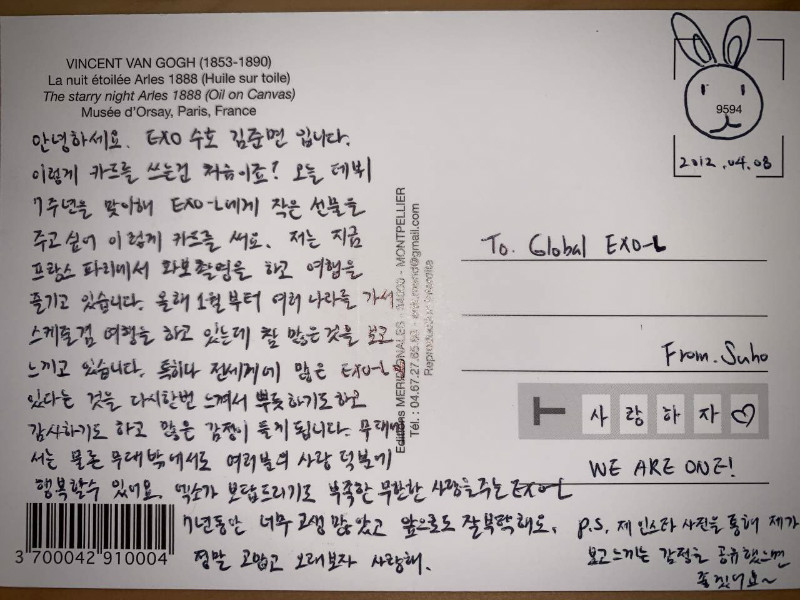 VINCENT VAN GOGH (1853-1890)
La nuit étoilée Arles 1888 (Huile sur toile)
The starry night Arles 1888 (Oil on Canvas)
Musée d'Orsay, Paris, France
안녕하세요. EXO 수호 김준면 입니다.
이렇게 카드를 쓰는건 처음이죠? 오늘 데뷔
7주년을 맞이해 EXO-L에게 작은 선물을
주고싶어 이렇게 카드를 써요. 저는 지금
프랑스 파리에서 화보촬영을 하고 여행을
즐기고 있습니다. 올해 1월부터 여러 나라를 가서
스케줄겸 여행을 하고 있는데 참 많은것을 보고
느끼고 있습니다. 특히나 전세계에 많은 EXO-L이
있다는 것을 다시한번 느껴서 뿌듯하기도하고
감사하기도 하고 많은 감정이 들게됩니다. 무대에
서는 물론 무대밖에서도 여러분의 사랑 덕분에
행복할수 있어요. 엑소가 보답드리기로 부족한 무한한 사랑을주는 EXO-L
7년동안 너무 고생 많았고 앞으로도 잘부탁해요.
정말 고맙고 오래보자 사랑해.
3 700042 910004
Editions MERIDIONALES - 34000 - MONTPELLIER
Tél. : 04.67.27.65.
@gmail.com
Reproduction interdite
9594
2012.04.08
To. Global EXO-L
From. Suho
ㅜ 사랑하자♡
WE ARE ONE!
p.s. 제 인스타 사진을 통해 제가
보고느끼는 감정을 공유했으면
좋겠어요~